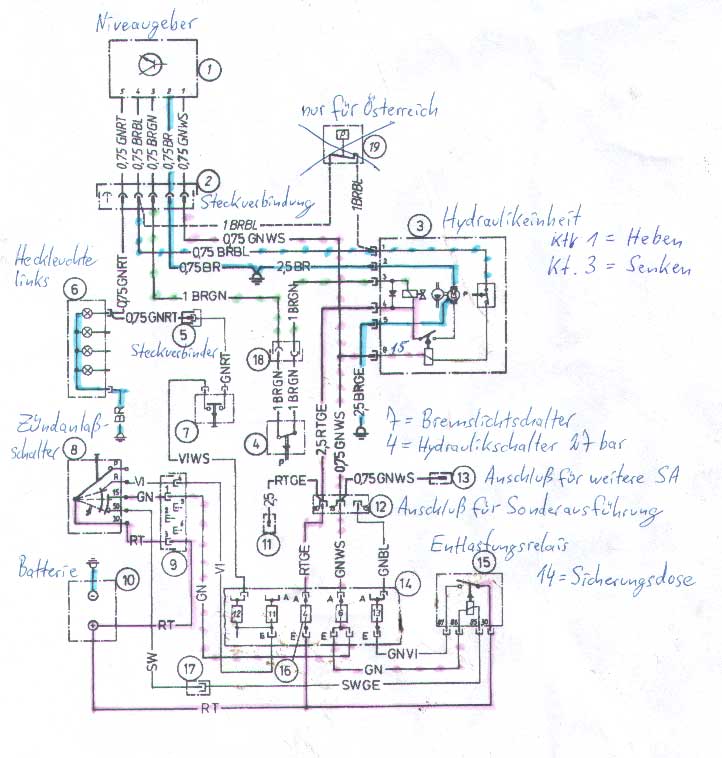 Niveaugeber
1
5 4 3 2 1
0,75 GNRT
0,75 BRBL
0,75 BRGN
0,75 BR
0,75 GNWS
nur für Österreich
P
19
2
Steckverbindung
1 BRBL
1BRBL
3
Hydraulikeinheit
0,75 GNWS
0,75 BRBL
0,75 BR
2,5 BR
Ktk 1 = Heben
Kt. 3 = Senken
Heckleuchte
links
6
0,75GNRT
1 BRGN
1 BRGN
0,75 GNRT
5
Steckverbinder
GNRT
18
1
2
3
4
5
8
15
P
BR
7
1BRGN
1BRGN
4
P
2,5 RTGE
0,75 GNWS
2,5BRGE
7 = Bremslichtschalter
4 = Hydraulikschalter 27 bar
Zündanlaß-
schalter
8
P
R
15
50
30
VIWS
VI
GN
RT
9
RTGE
0,75 GNWS
13
Anschluß für weitere SA
2,5
11
12
Anschluß für Sonderausführung
Batterie
10
RT
GN
VI
RTGE
GNWS
GNBL
14
Entlastungsrelais
15
14 = Sicherungsdose
A A A
12
11
E E E E
87 86 85 30
GNVI
SW
17
16
GN
SWGE
RT